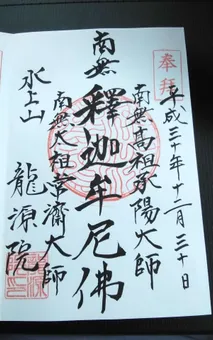 奉拝
平成三十年十二月三十日
南無高祖承陽大師
南無釋迦牟尼佛
南無太祖常濟大師
水上山
龍源院